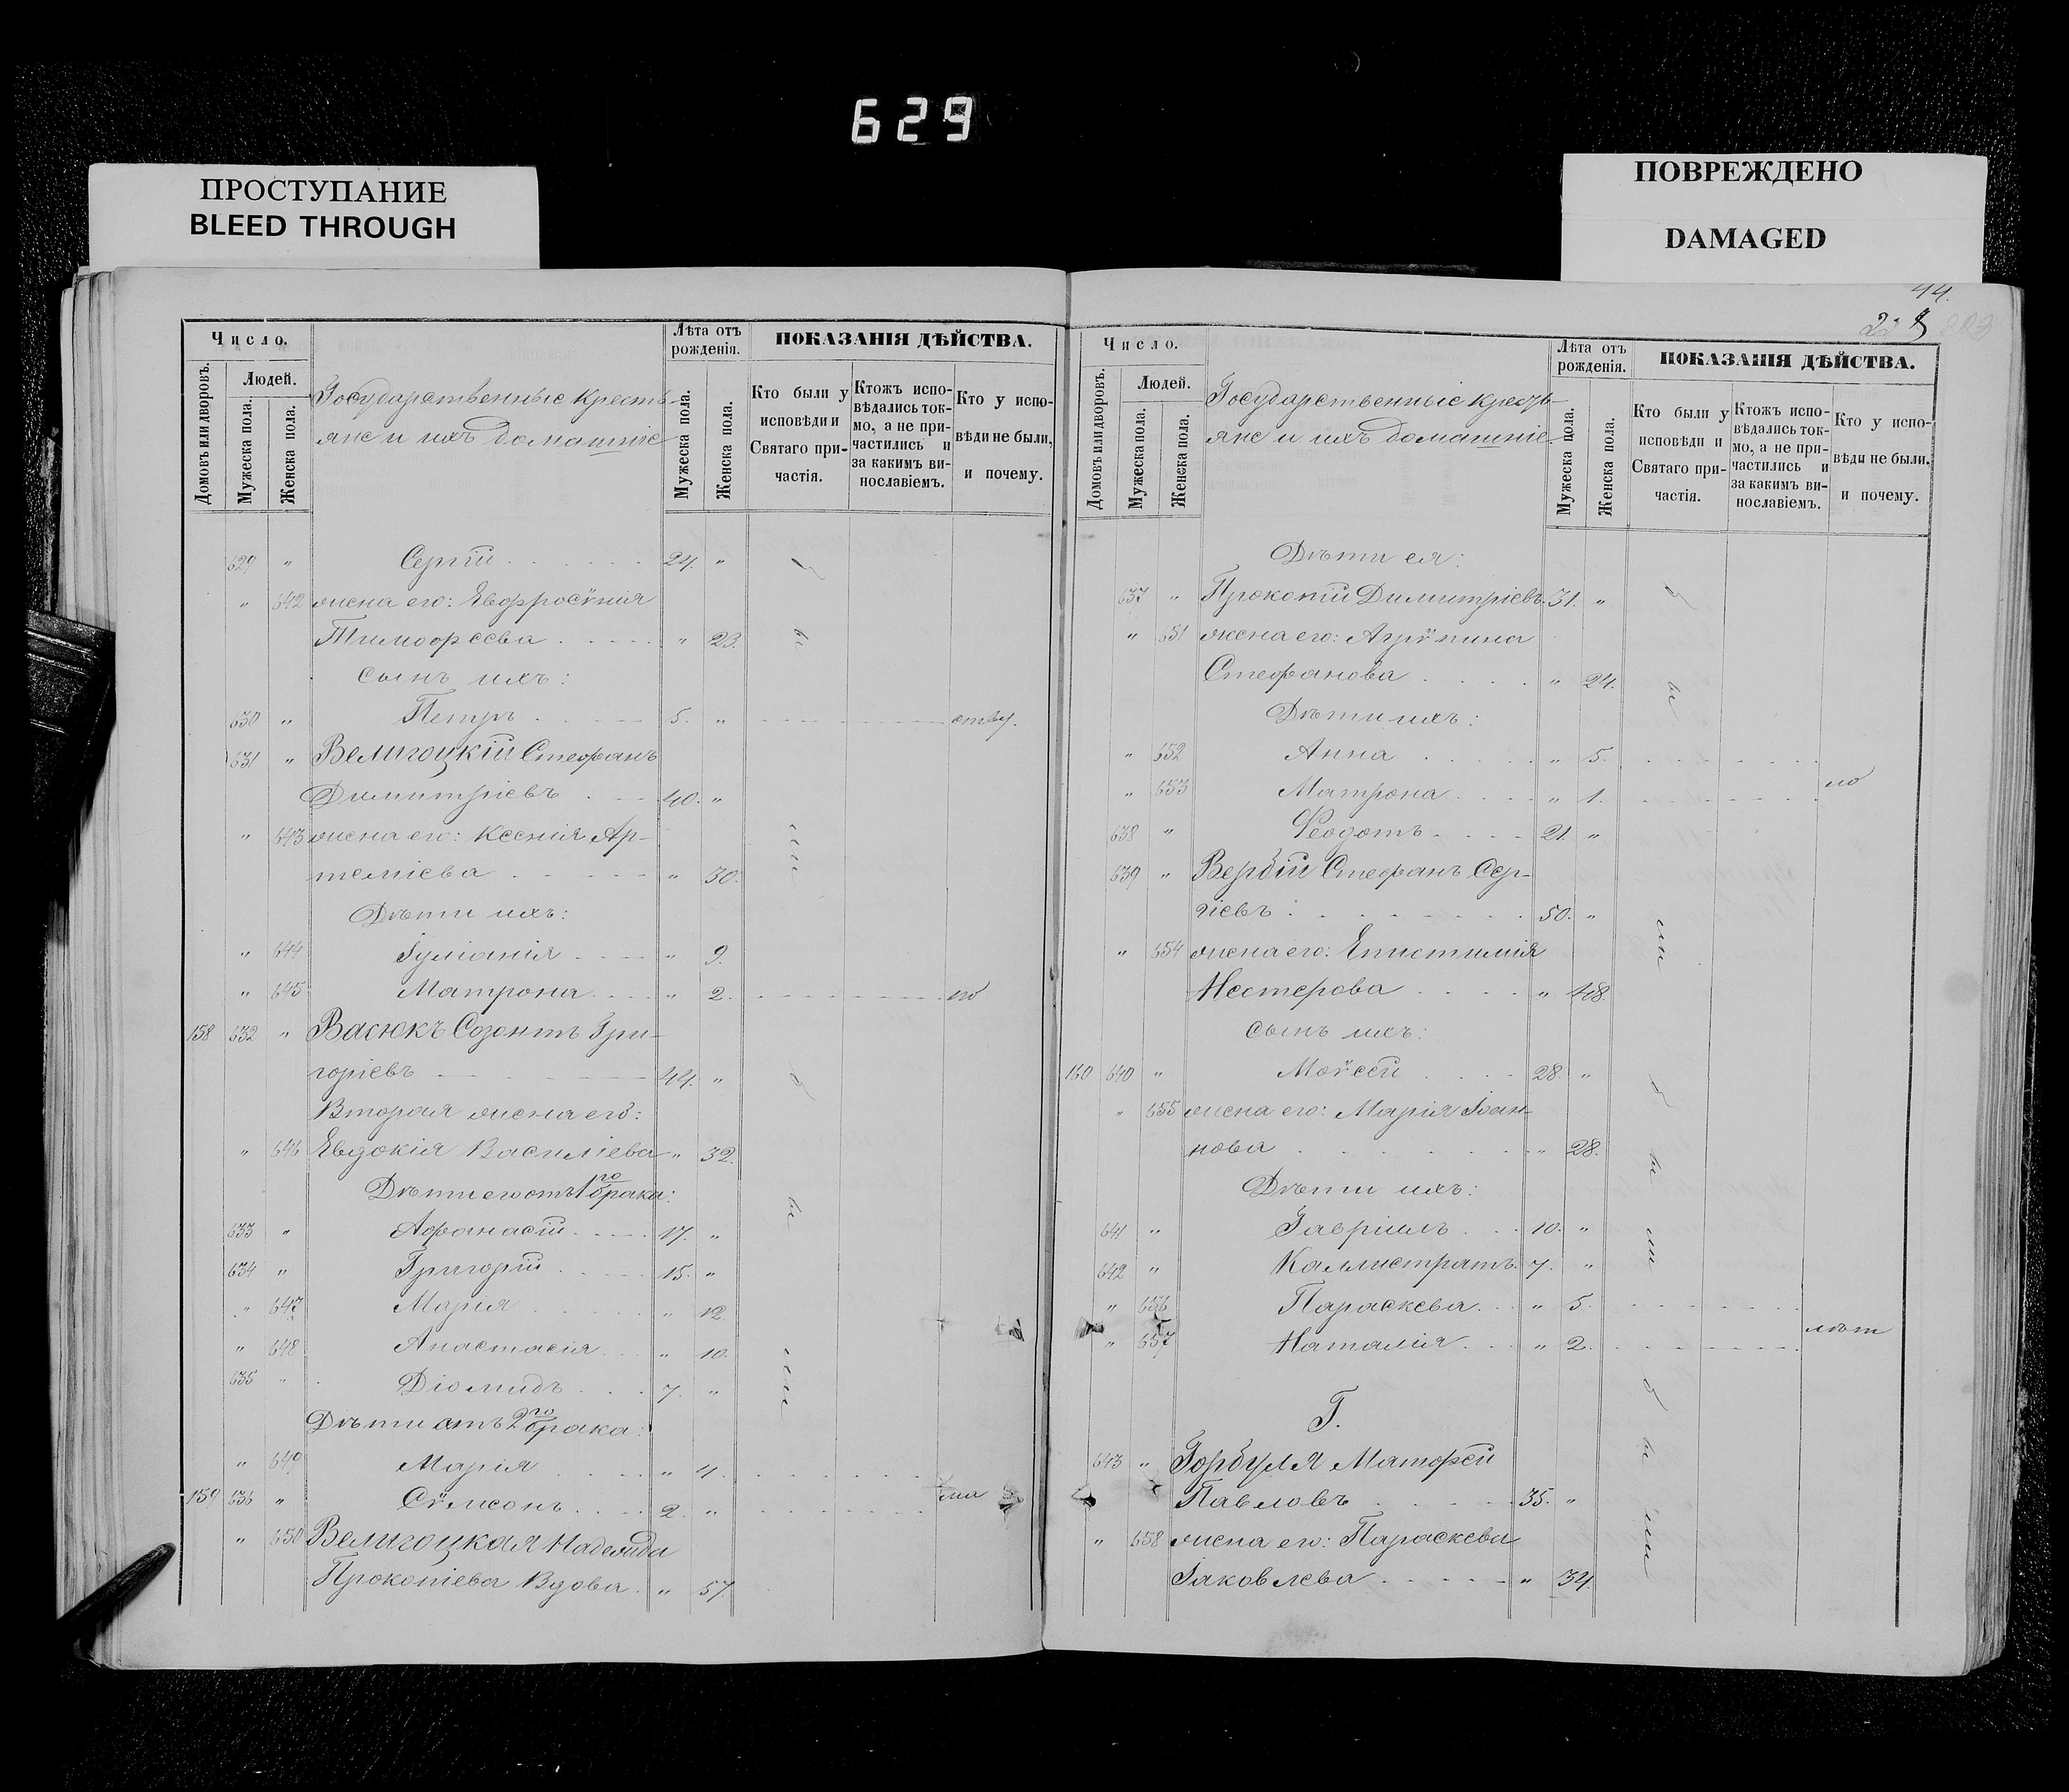 629
ПРОСТУПАНИЕ
BLEED THROUGH
ПОВРЕЖДЕНО
DAMAGED
Число.
Домовъ или дворовъ.
Людей.
Мужеска пола.
Женска пола.
Государственные Кресть-
яне и ихъ домашніе
Лѣта отъ рожденія.
Мужеска пола.
Женска пола.
ПОКАЗАНІЯ ДѢЙСТВА.
Кто были у исповѣди и Святаго причастія.
Ктожъ исповѣдались токмо, а не причастились и за какимъ винославіемъ.
Кто у исповѣди не были, и почему.
629 " Сергій 24. "
" 642 жена его: Евфросѵнія
Тимофеева " 23.
сынъ ихъ:
630 " Петръ 5. "
631 " Велигоцкій Стефанъ
Димитріевъ 40. "
" 643 жена его: Ксенія Ар-
теміева " 30.
Дѣти ихъ:
" 644 Іуліанія " 9.
" 645 Матрона " 2. по
158 632 " Васюкъ Созонтъ Гри-
горіевъ 44. "
Вторая жена его:
" 646 Евдокія Василіева " 32.
Дѣти его отъ 1го брака:
633 " Афанасій 17. "
634 " Григорій 15. "
" 647 Марія " 12.
" 648 Анастасія " 10.
635 " Діомидъ 7. "
Дѣти отъ 2го брака:
" 649 Марія " 4.
159 636 " Сѵмеонъ 2. "
" 650 Велигоцкая Надежда
Прокопіева Вдова " 57.
44.
Число.
Домовъ или дворовъ.
Людей.
Мужеска пола.
Женска пола.
Государственные Кресть-
яне и ихъ домашніе
Лѣта отъ рожденія.
Мужеска пола.
Женска пола.
ПОКАЗАНІЯ ДѢЙСТВА.
Кто были у исповѣди и Святаго причастія.
Ктожъ исповѣдались токмо, а не причастились и за какимъ винославіемъ.
Кто у исповѣди не были, и почему.
Дѣти ея:
637 " Прокопій Димитріевъ 31. "
" 651 жена его: Агрѵпина
Стефанова " 24.
Дѣти ихъ:
" 652 Анна " 5.
" 653 Матрона " 1. по
638 " Феодотъ 21. "
639 " Вербій Стефанъ Сер-
гіевъ 50. "
" 654 жена его: Епистимія
Нестерова " 48.
сынъ ихъ:
160 640 " Моѵсей 28. "
" 655 жена его: Марія Іоан-
нова " 28.
Дѣти ихъ:
641 " Гавріилъ 10. "
642 " Каллистратъ 7. "
" 656 Параскева " 5.
" 657 Наталія " 2. лѣт
Г.
643 " Горбуля Матфей
Павловъ 35. "
" 658 жена его: Параскева
Іаковлева " 34.